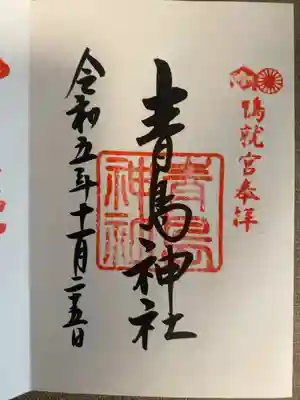 鴨就宮奉拝
青島神社
青島
神社
令和五年十一月二十五日